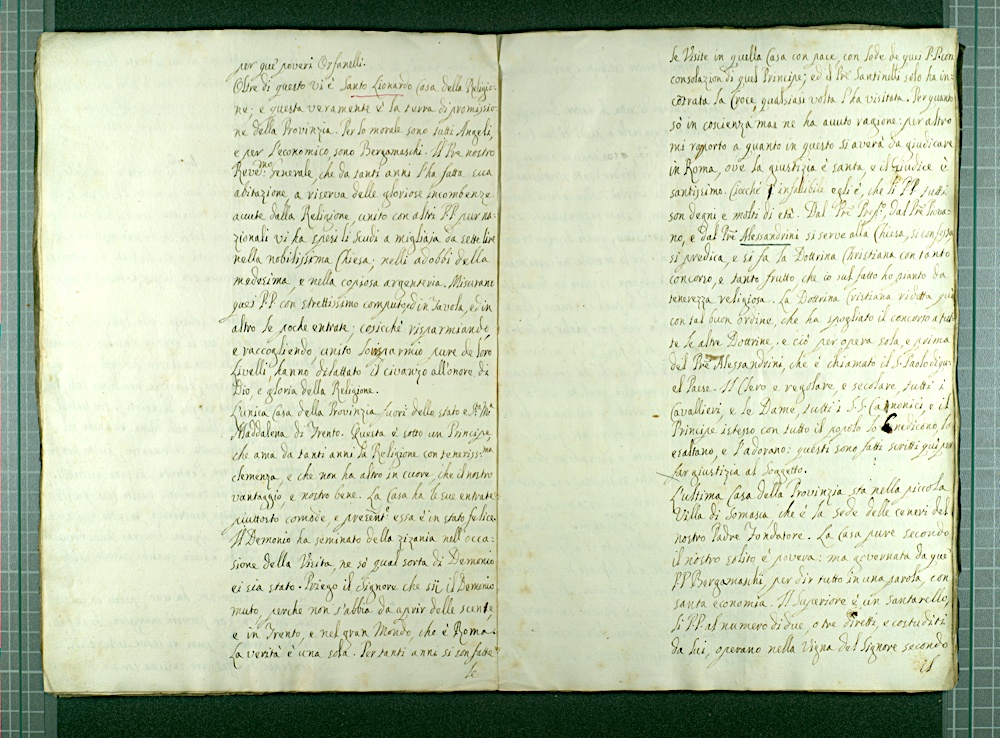 per que' poveri Orfanelli.
Oltre di questo vi è Santo Lionardo Casa della Religio-
ne, e questa veramente è la terra di promissio-
ne della Provinzia. Per lo morale sono tutti Angeli,
e per l'economico sono Bergamaschi. Il Pre nostro
Rev.mo Generale, che da tanti anni l'ha fatta sua
abitazione, a riserva delle gloriose incombenze
avute dalla Religione, unito con altri PP. pur na-
zionali vi ha spesi li scudi a migliaja da sette lire
nella nobilissima Chiesa, nelli adobbi della
medesima, e nella copiosa argenteria. Misurano
quei PP. con strettissimo computo, ed in Tavola, ed in
altro le poche entrate; cosicchè risparmiando,
e raccogliendo, unito lo isparmio pure de' loro
Livelli hanno didattato il civanzo all'onore di
Dio, e gloria della Religione.
L'unica Casa della Provinzia fuori dello stato è S.ta M.a
Maddalena di Trento. Questa è sotto un Principe,
che ama da tanti anni la Religione con teneriss.ma
clemenza, e che non ha altro in cuore, che il nostro
vantaggio, e nostro bene. La Casa ha le sue entrate
piuttosto comode, e present.e essa è in stato felice.
Il Demonio ha seminato della zizania nell'occa-
sione della Visita, ne sò qual sorta di Demonio
ei sia stato. Priego il Signore che sii il Demonio
muto, perchè non s'abbia da aprir delle scente,
e in Trento, e nel gran Mondo, che è Roma.
La verità è una sola. Per tanti anni si son fatte
le
le Visite in quella Casa con pace, con lode de quei PP. con
consolazion di quel Principe; ed il Pre Santinelli solo ha in-
contrata la Croce, qualsiasi volta l'ha visitata. Per quanto
sò in coscienza mai ne ha avuto ragione: per altro
mi raporto a quanto in questo si averà da giudicare
in Roma, ove la giustizia è santa, e il Giudice è
santissimo. Cicchè l'infallibile egli è, che li PP. tutti
son degni, e molti di età. Dal Pre Prep.to, dal Pre
no, e dal Pre Alessandrini si serve alla Chiesa, si confessa
si predica, e si fa la Dottrina Christiana con tanto
concorso, e tanto frutto che io sul fatto ho pianto da
tenerezza religiosa. La Dottrina Cristiana ridotta quì
con tal buon ordine, che ha spogliato il concorso a tut-
te le altre Dottrine, e ciò per opera sola, e prima
del Pre Alessandrini, che è chiamato il S. Paolo di qu-
el Paese. Il Clero e regolare, e secolare, tutti i
Cavallieri, e le Dame, tutti i SS. Cannonici, e il
Principe istesso con tutto il popolo lo benedicono, lo
esaltano, e l'adorano: questi sono fatti scritti quì per
far giustizia al Soggetto.
L'ultima Casa della Provinzia stà nella piccola
Villa di Somasca, che è la sede delle ceneri del
nostro Padre Fondatore. La Casa pure secondo
il nostro solito è povera: ma governata da que'
PP. Bergamaschi, per dir tutto in una parola, con
santa economia. Il Superiore è un santarello,
Li PP. al numero di due, o tre diretti, e costuditi
da lui, operano nella Vigna del Signore secondo
il